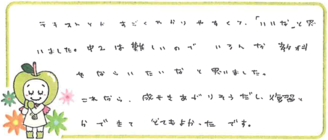 テキストとか すごくわかりやすくて、「いいな」と思
いました。中2は難しいので いろんな 教科
をならいたいなと思いました。
これなら、成せきあがりそうだし、復習と
かできて とてもよかったです。